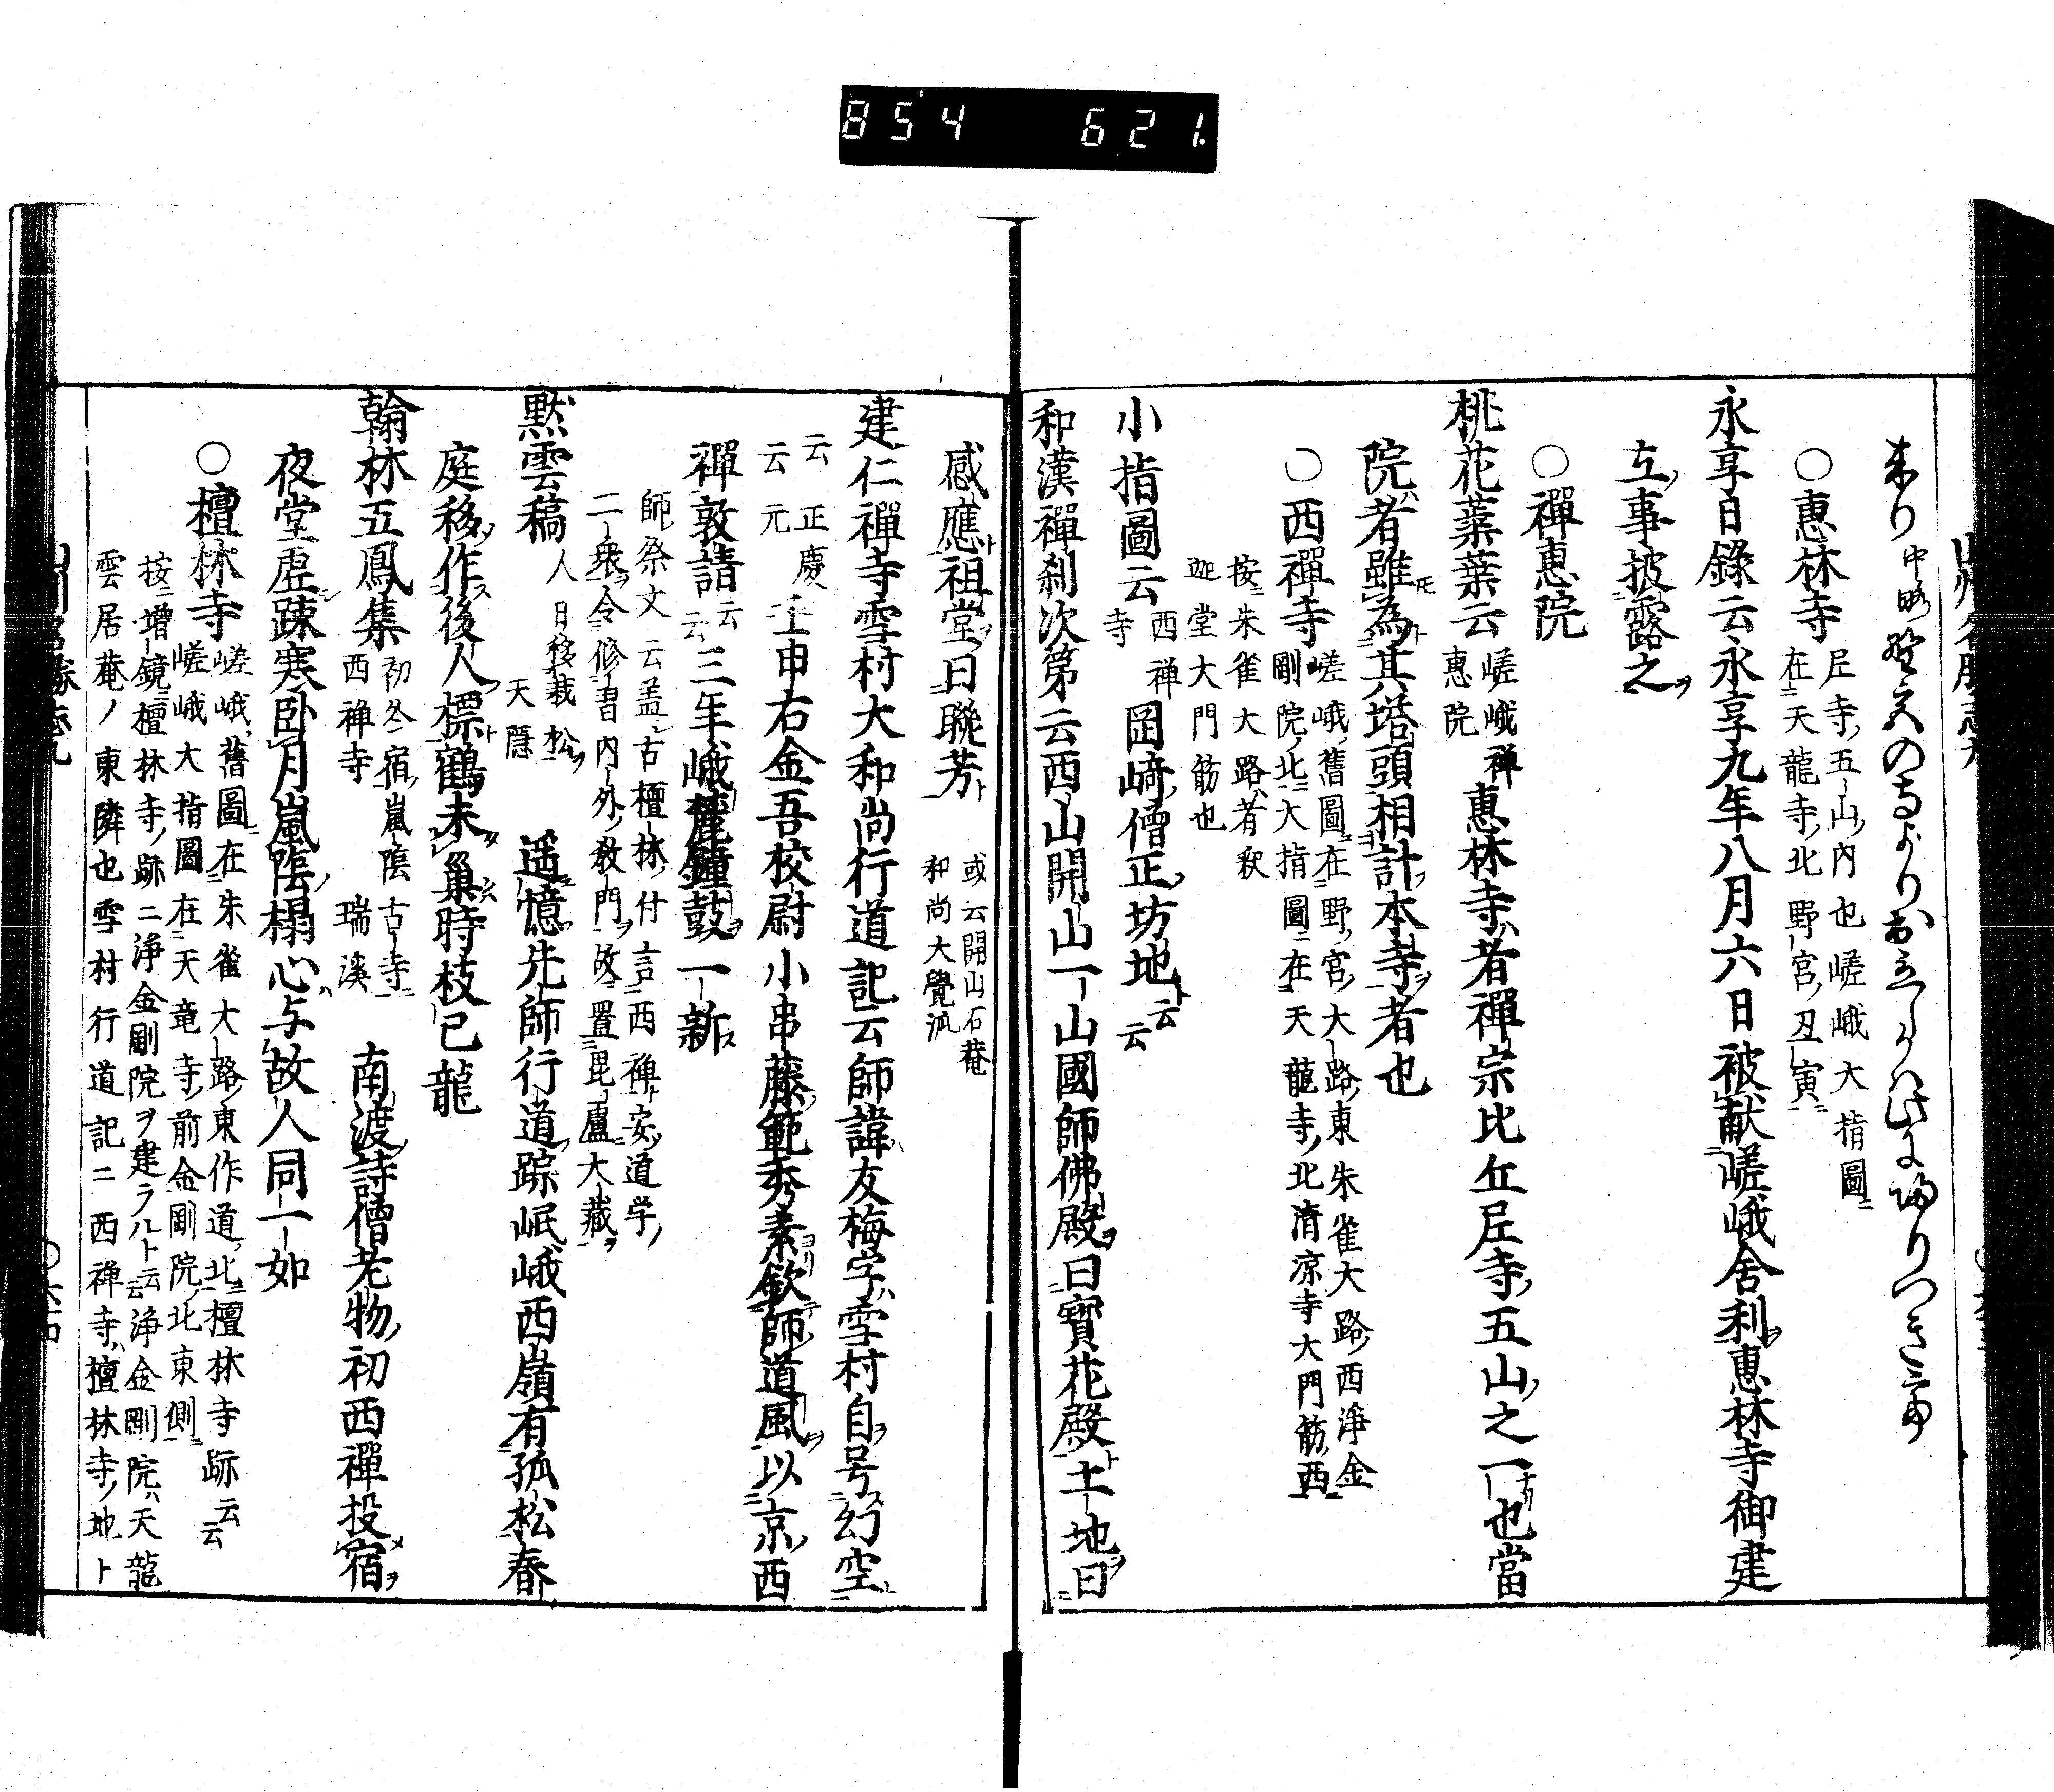 854 621
来り中略野宮の
○惠林寺
尼寺五山内也嵯峨大指圖ニ
在ニ天龍寺北野宮丑寅ニ
永享日錄云永享九年八月六日被献嵯峨舍利惠林寺御建
立事披露之
○禪惠院
桃花蘂葉云嵯峨禅惠院惠林寺者禪宗比丘尼寺五山之一也當
院者雖為其塔頭相計本寺者也
○西禪寺
嵯峨舊圖在野宮大路東朱雀大路西浄金
剛院北大指圖在天龍寺北清凉寺大門筋西
按ニ朱雀大路者釈
迦堂大門筋也
小指圖云西禅寺岡﨑僧正坊地云云
和漢禪刹次第云西山開山一山國師佛殿曰寶花殿土地曰
感應祖堂曰聯芳
或云開山石菴
和尚大覺派
建仁禪寺雪村大和尚行道記云師諱友梅字雪村自号幻空
云云正慶元壬申右金吾校尉小串藤範秀素欽師道風以京西
禪敦請云云三年峨麓鐘鼓一新
師祭文云盖古檀林付言西禅安道学
二衆令修習内外教門故置毘盧大藏
黙雲稿
人日移栽松天隱
遥憶先師行道踪岷峨西嶺有孤松春
庭移作後人標鶴未巢時枝已龍
翰林五鳳集
初冬宿嵐隂古寺
西禅寺瑞溪
南渡詩僧老物初西禪投宿
夜堂虚踈寒卧月嵐隂榻心与故人同一如
○檀林寺
嵯峨舊圖在朱雀大路東作道北檀林寺跡云云
嵯峨大指圖在天竜寺前金剛院北東側
按ニ増鏡檀林寺跡ニ浄金剛院ヲ建ラルト云云浄金剛院ハ天龍
雲居菴ノ東隣也雪村行道記ニ西禅寺檀林寺ノ地ト